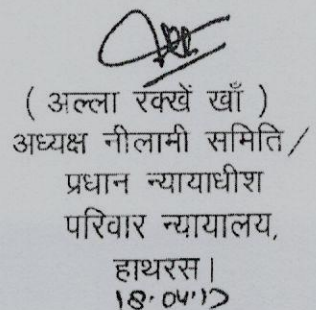 ( अल्ला रक्खें खाँ )
अध्यक्ष नीलामी समिति /
प्रधान न्यायाधीश
परिवार न्यायालय,
हाथरस।
18.04.17